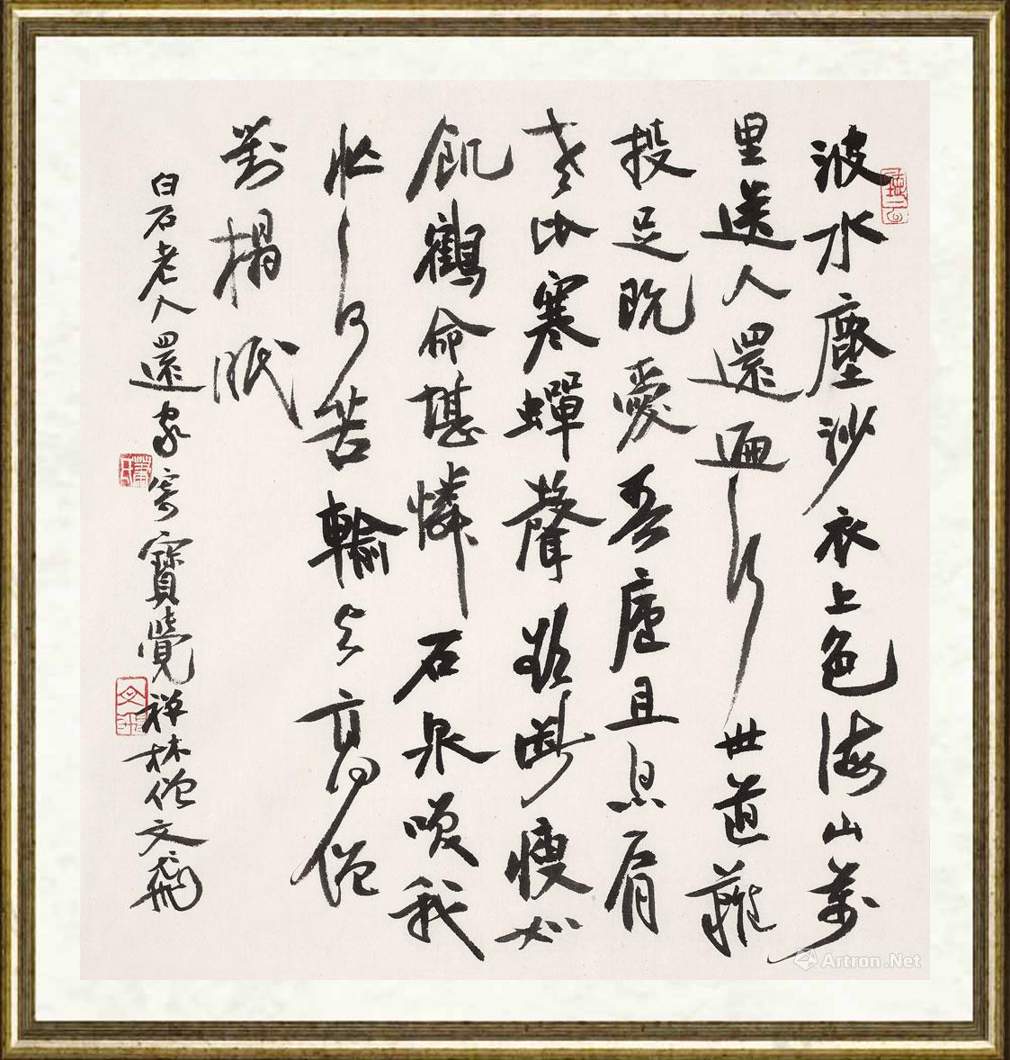 波水塵沙衣上色海山萬
里送人還迴行世道難
投足既愛吾廬且息肩
老比寒蟬聲欲斷瘦如
飢鶴命堪憐石泉喚我
忙何苦輸與高僧
對榻眠
白石老人還家寄寶覺禅林僧文飛
Artron.Net